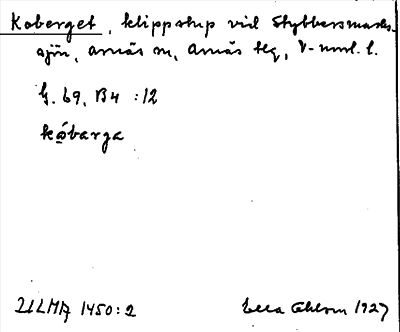 Koberget, klippstup vid Stybbersmarks-
sjön, Arnäs sn, Arnäs tlg, V-nrrl. l.
G. 69, B4 :12
kǫ́barga
ULMA 1450:2 Ella Ohlson 1927